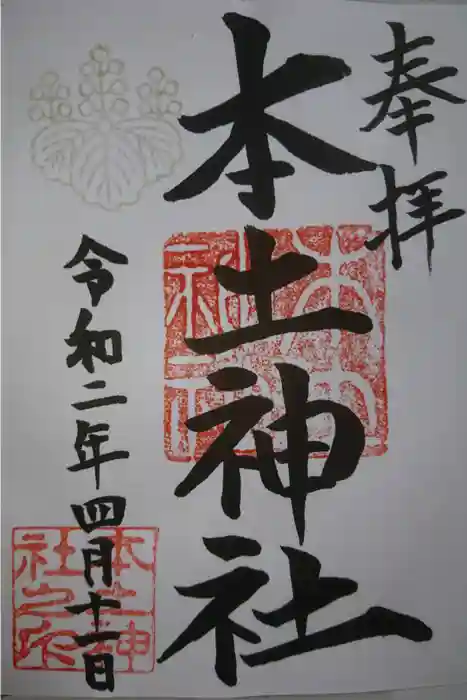 奉拝
本土神社
令和二年四月十一日
本土神社
本土神社之印